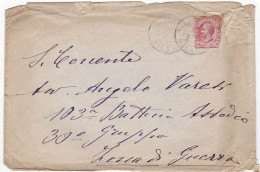 S. Tenente
Angelo Varesi
103ª Batteria Assedio
30º Gruppo
Zona di Guerra